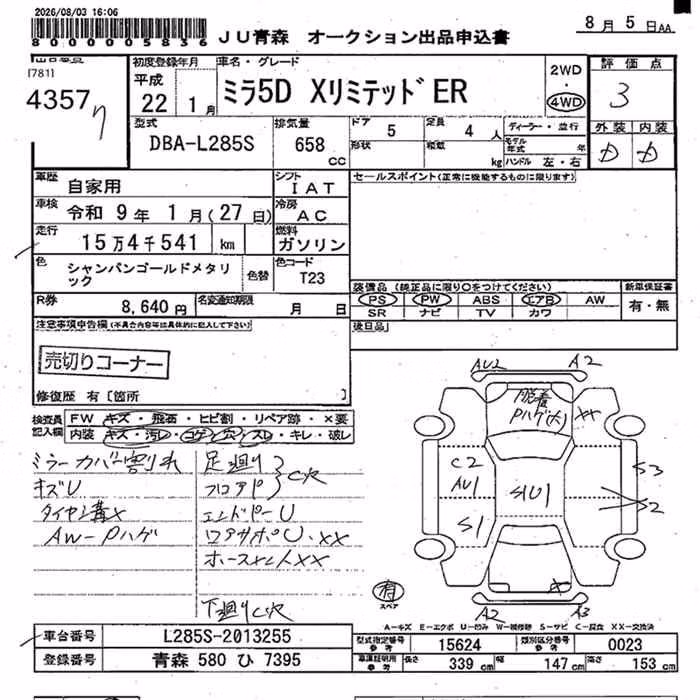 2026/08/03 16:06
8000005836
JU青森 オークション出品申込書
8月5日AA
[781]
4357
初度登録年月
平成
22 1月
車名・グレード
ミラ5D XリミテッドER
2WD
・
4WD
評価点
3
型式
DBA-L285S
排気量
658
cc
ドア
5
定員
4人
ディーラー・並行
形状
積載
kg
モデル年式
年
ハンドル 左・右
外装 内装
D D
車歴
自家用
シフト
IAT
セールスポイント(正常に機能するものに限ります)
車検
令和 9年 1月(27日)
冷房
AC
走行
15万4千541 km
燃料
ガソリン
色
シャンパンゴールドメタリック
色替
色コード
T23
装備品 (純正品に限り○をつけてください)
新車保証書
PS PW ABS エアB AW
有・無
SR ナビ TV カワ
R券
8,640円
名変通知期限
月 日
後日品
注意事項申告欄(不具合内容等は具体的に記入して下さい)
売切りコーナー
修復歴 有〔箇所 〕
検査員記入欄
FW キズ・飛石・ヒビ割・リペア跡・×要
内装 キズ・汚レ・コゲ・穴・スレ・キレ・破レ
ミラーカバー割れ
キズU
タイヤ溝×
AW-Pハゲ
足廻り
フロアP
C穴
エンドPーU
ロアサポU・××
下廻りC穴
AU2 A2
脱着
Pハゲ(大)
××
C2
AU1
S1
SIU1
S3
S2
×
A2 A3
有
スペア
A－キズ E－エクボ U－凹み W－補修跡 S－サビ C－腐食 XX－交換済
車台番号
L285S-2013255
登録番号
青森 580 ひ 7395
型式指定番号
参考
15624
類別区分番号
参考
0023
車庫証明用
参考
長さ
339 cm
幅
147 cm
高さ
153 cm